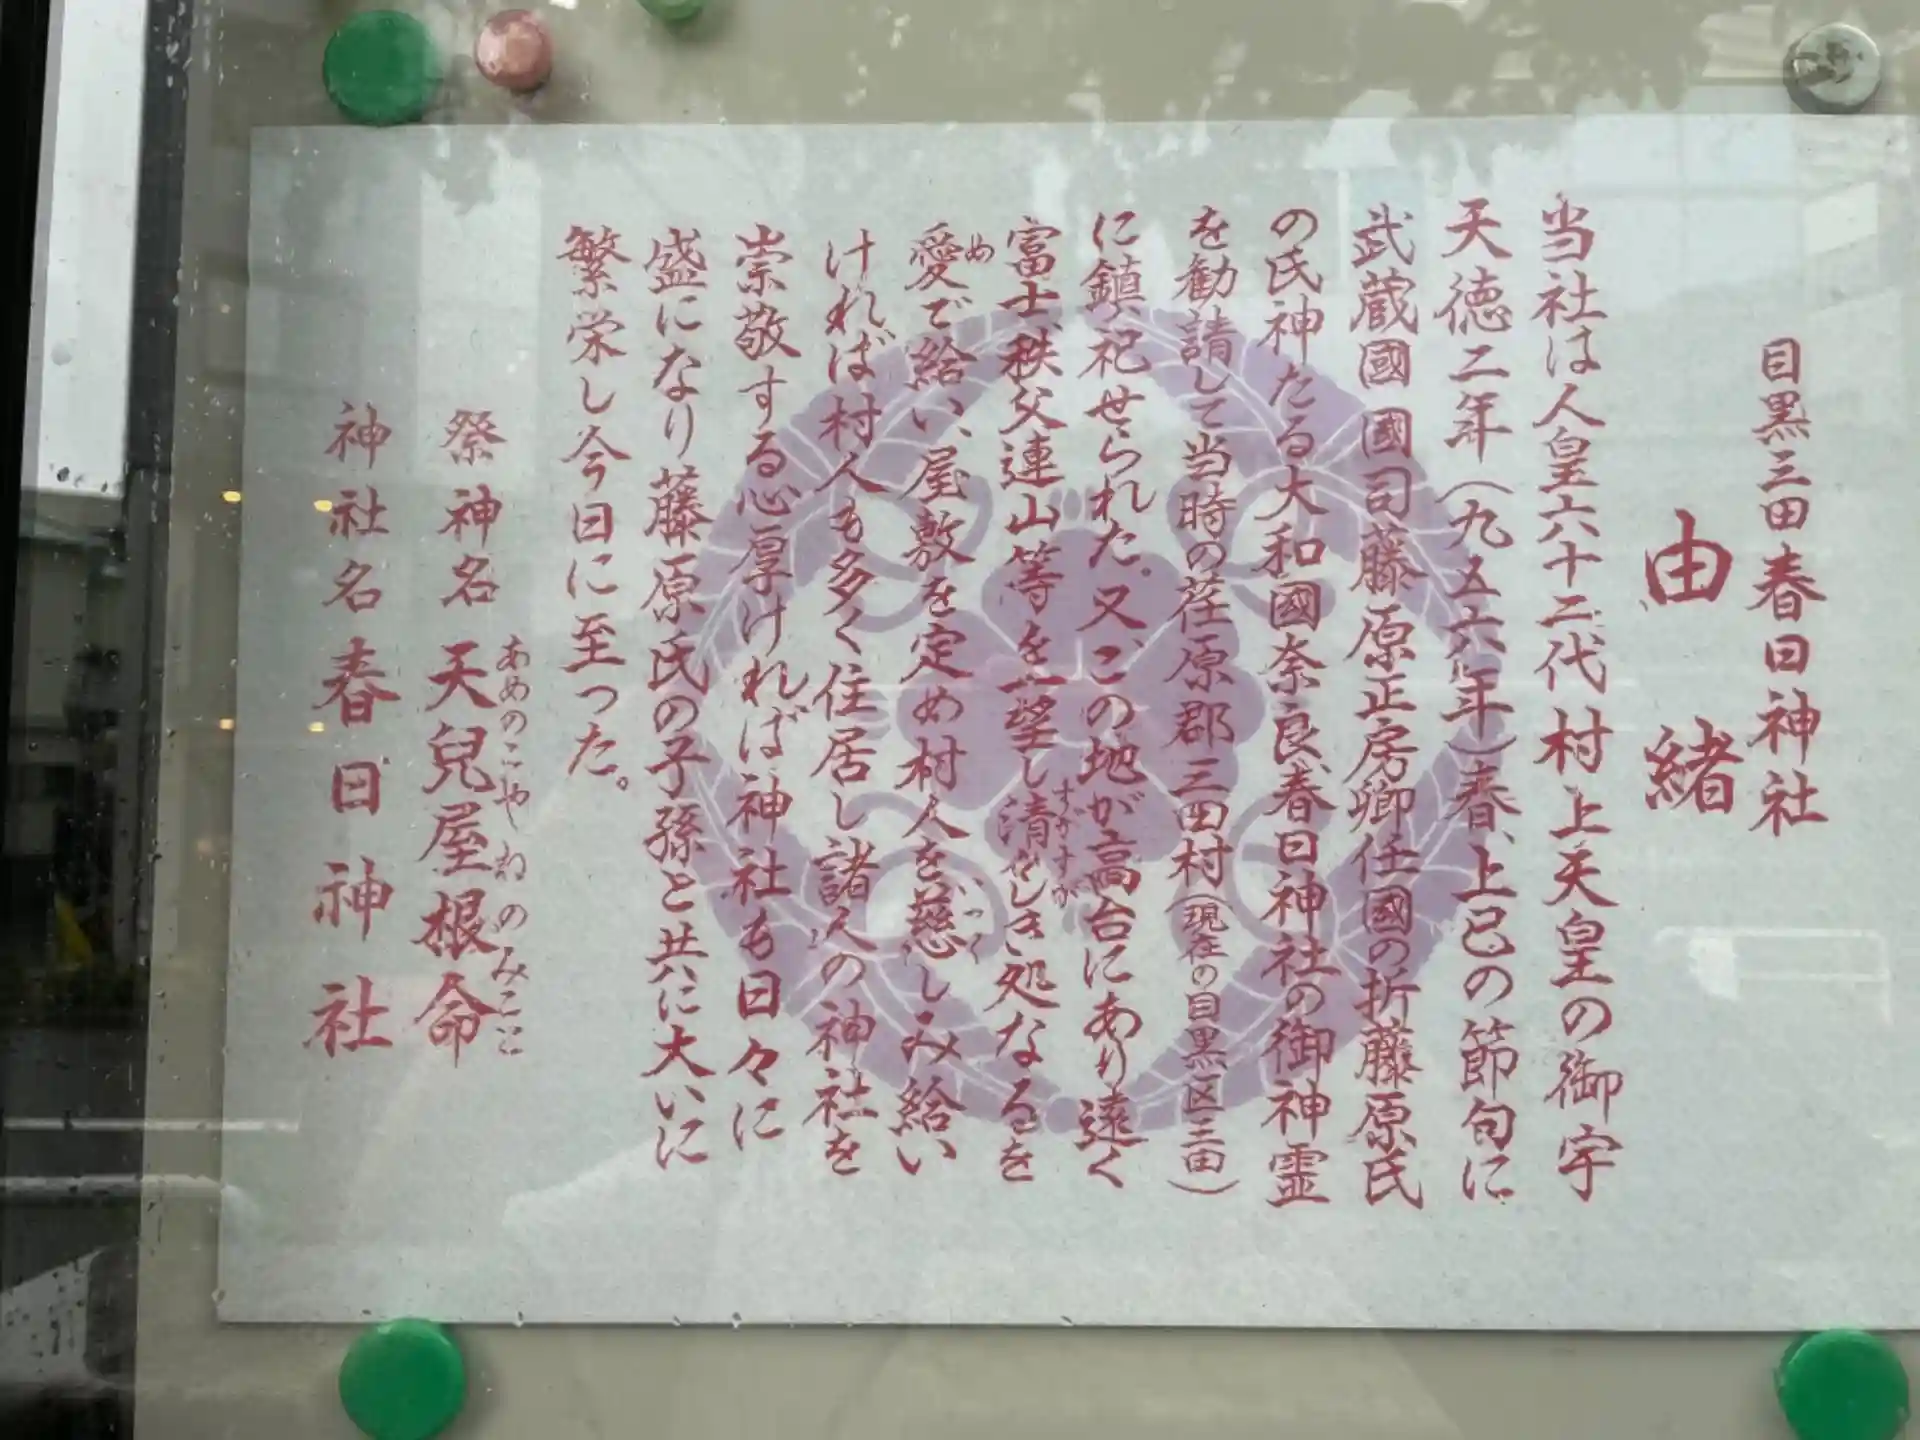 目黒三田春日神社
由緒
当社は人皇六十二代村上天皇の御宇
天徳二年（九五六年）春、上巳の節句に
武蔵國國司藤原正房卿任國の折藤原氏
の氏神たる大和國奈良春日神社の御神霊
を勧請して当時の荏原郡三田村（現在の目黒区三田）
に鎮祀せられた。又、この地が高台にあり遠く
富士、秩父連山等を一望し清々しき処なるを
すがすが
愛で給い、屋敷を定め村人を慈しみ給い
め
いつく
ければ村人も多く住居し諸人の神社を
崇敬する心厚ければ神社も日々に
盛になり藤原氏の子孫と共に大いに
繁栄し今日に至った。
祭神名 天兒屋根命
あめのこやねのみこと
神社名 春日神社